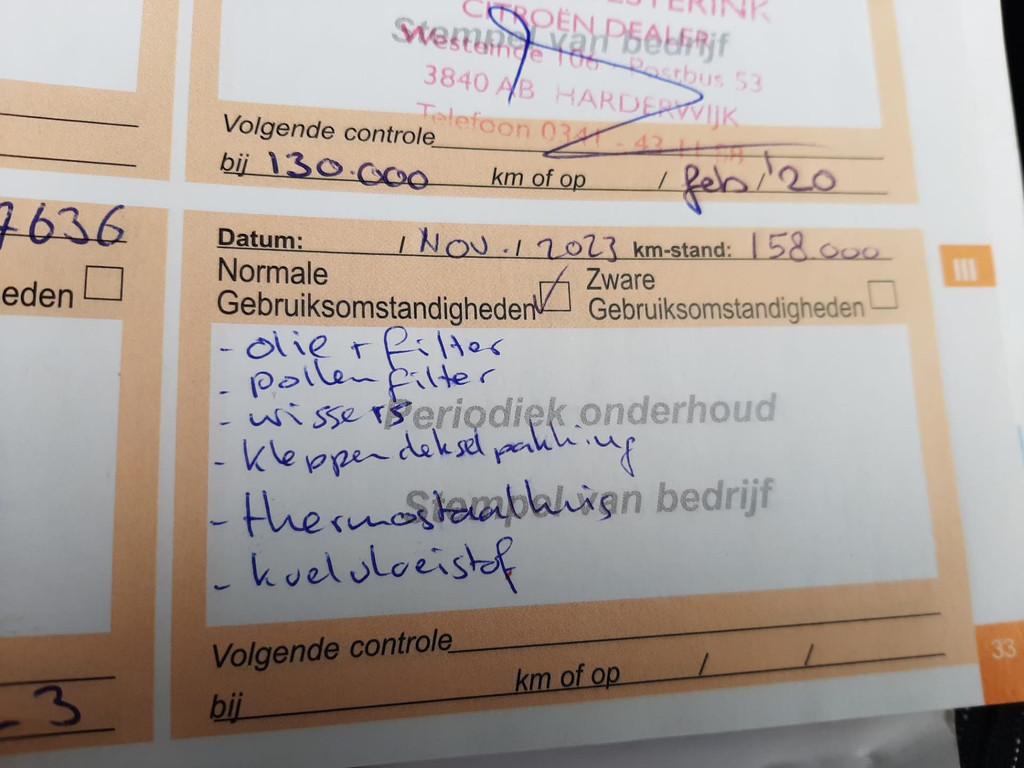 CITROËN DEALER
Stempel van bedrijf
Westeinde 106 - Postbus 53
3840 AB HARDERWIJK
Telefoon 0341 - 43 11 58
Volgende controle
bij 130.000 km of op / feb / '20
7636
Datum: / NOV. / 2023 km-stand: 158.000
Normale
Gebruiksomstandigheden
Zware
Gebruiksomstandigheden
eden
III
- olie + filter
- pollen filter
- wissers
Periodiek onderhoud
- kleppendeksel pakking
- thermostaathuis
Stempel van bedrijf
- koelvloeistof
Volgende controle
bij km of op / /
- 3
33